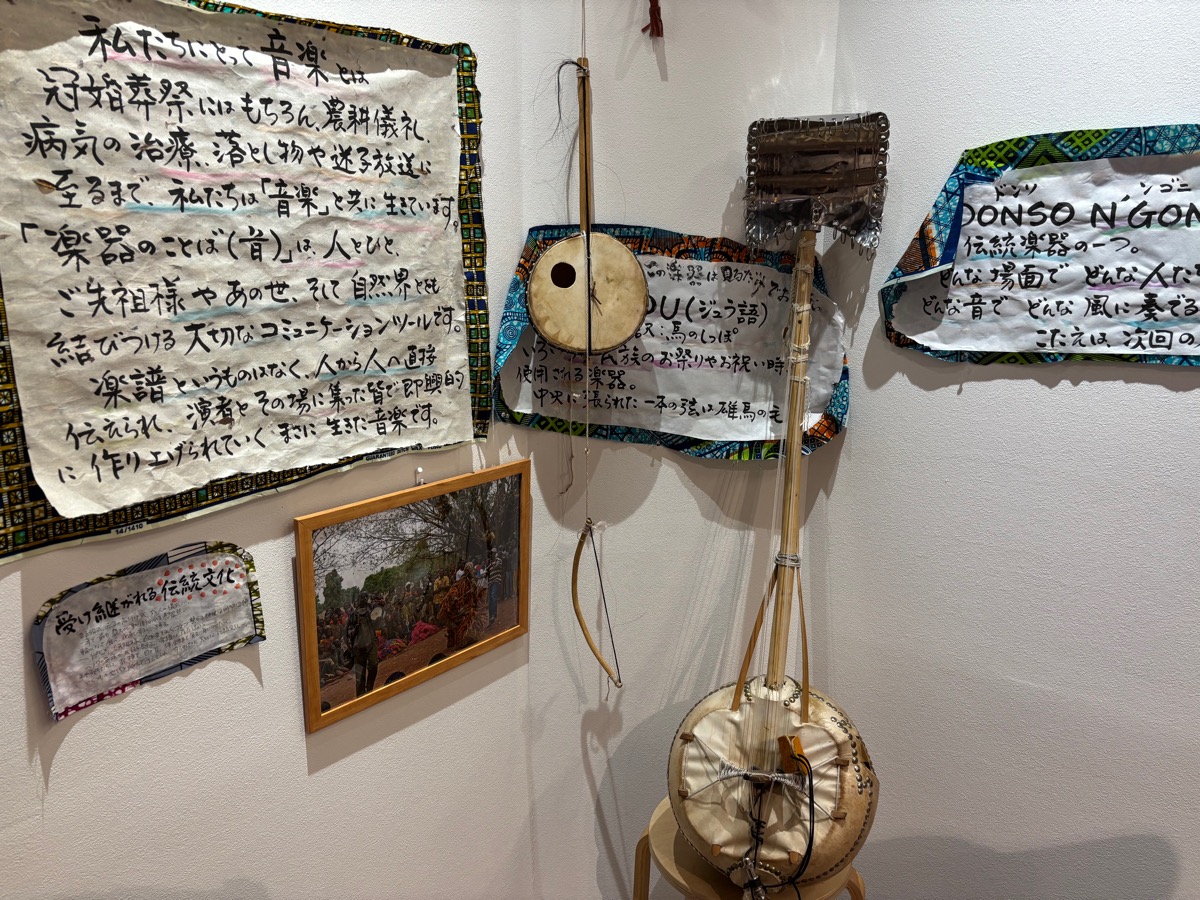 私たちにとって音楽とは
冠婚葬祭にはもちろん、農耕儀礼、
病気の治療、落とし物や迷子放送に
至るまで、私たちは「音楽」と共に生きています。
「楽器のことば(音)」は、人とひと、
ご先祖様やあの世、そして自然界とも
結びつける大切なコミュニケーションツールです。
楽譜というものはなく、人から人へ直接
伝えられ、演者とその場に集った皆で即興的
に作り上げられていく、まさに生きた音楽です。
14/1410
受け継がれる伝統文化
この楽器は見るだけで
OU(ジュラ語)
訳:馬のしっぽ
民族のお祭りやお祝い時、
使用される楽器。
中央に張られた一本の弦は雄馬の毛
ドンソ ンゴニ
DONSO N'GON
伝統楽器の一つ。
どんな場面で どんな人た
どんな音で どんな風に奏でる
こたえは、次回の